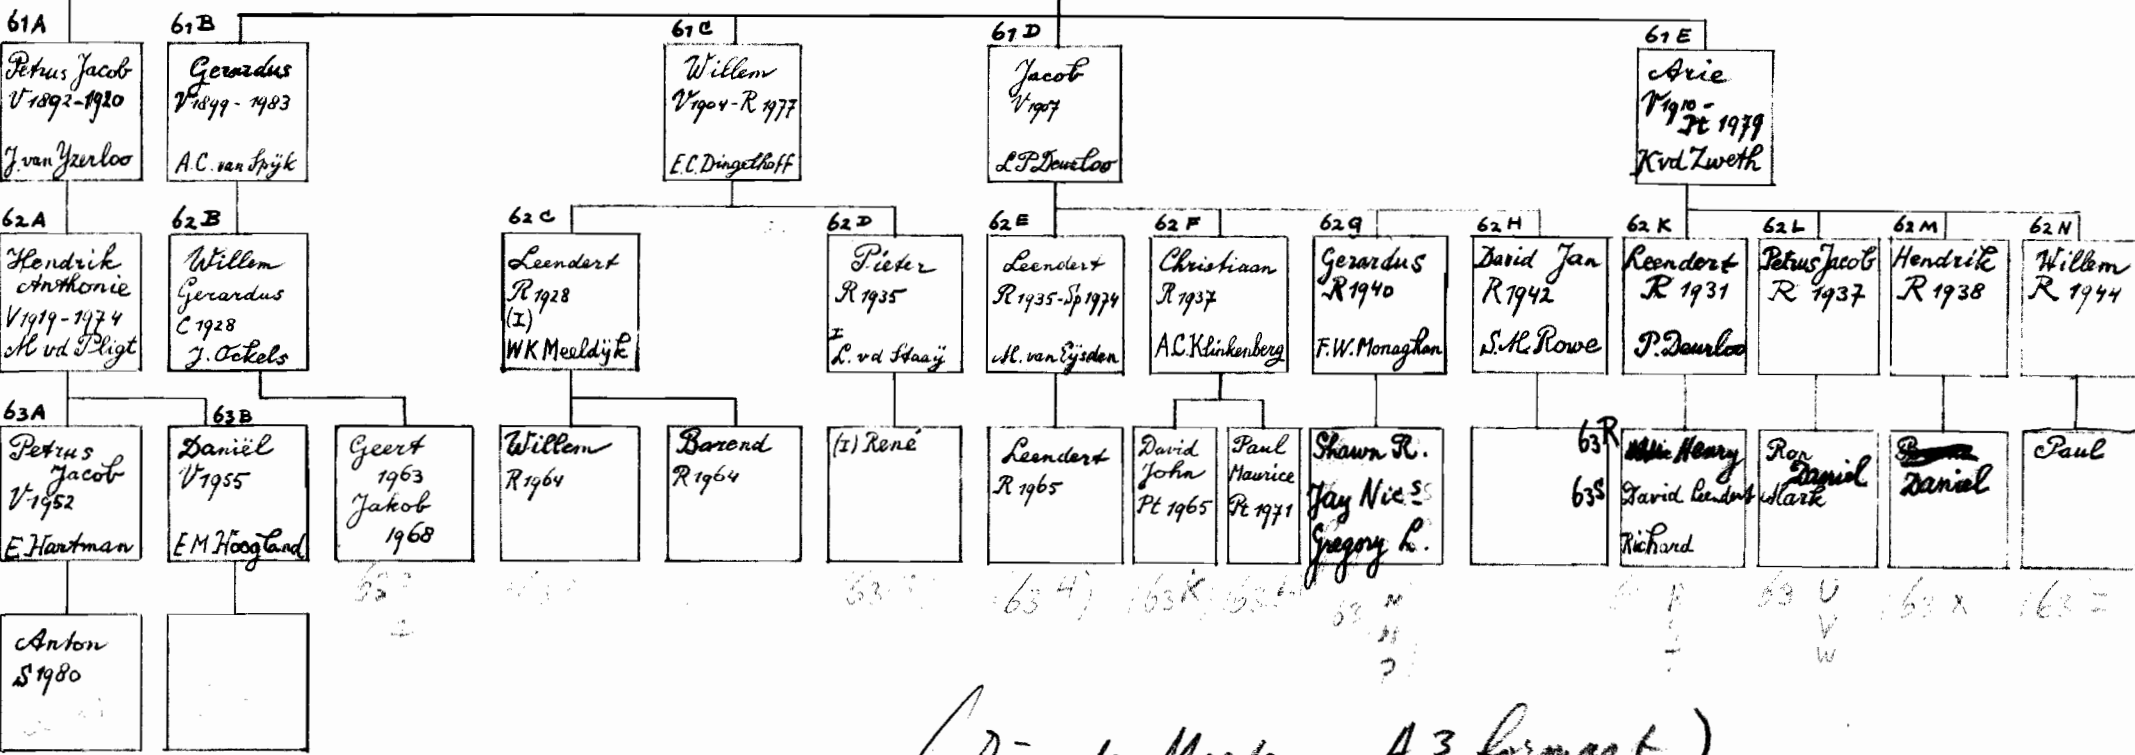 61A
Petrus Jacob
V 1892-1920
J. van Yzerloo
61B
Gerardus
V 1899 - 1983
A.C. van Spÿk
61C
Willem
V 1904 - R 1977
E.C. Dingelhoff
61D
Jacob
V 1907
L P Deurloo
61E
Arie
V 1910 -
Pt 1979
K vd Zweth
62A
Hendrik
Anthonie
V 1919 - 1974
M vd Pligt
62B
Willem
Gerardus
C 1928
J. Ockels
62C
Leendert
R 1928
(I)
W K Meeldÿk
62D
Pieter
R 1935
I
L. vd Staaÿ
62E
Leendert
R 1935 - Sp 1974
M. van Eÿsden
62F
Christiaan
R 1937
A.C. Klinkenberg
62G
Gerardus
R 1940
F.W. Monaghan
62H
David Jan
R 1942
S.M. Rowe
62K
Leendert
R 1931
P. Deurloo
62L
Petrus Jacob
R 1937
62M
Hendrik
R 1938
62N
Willem
R 1944
63A
Petrus
Jacob
V 1952
E. Hartman
63B
Daniël
V 1955
E M Hoogland
Geert
1963
Jakob
1968
Willem
R 1964
Barend
R 1964
(I) René
Leendert
R 1965
David
John
Pt 1965
Paul
Maurice
Pt 1971
Shawn R.
Jay Nies
Gregory L.
63R
Henry
63S
David Leendert
Richard
Ron
Daniel
Mark
Daniel
Paul
63
63
63 K
63
63
63 U
V
W
63 X
63
Anton
S 1980
A3 formaat)